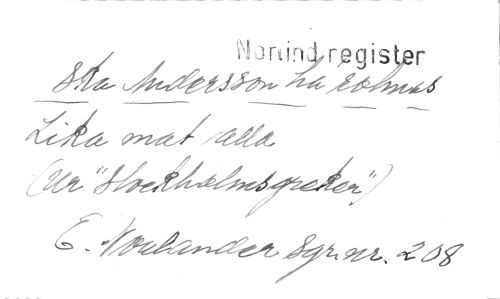 Norlind register
Ska Andersson ha
Lika mat alla
(Ur "Stockholmsgreker")
E. Norlander Sgr. nr. 208